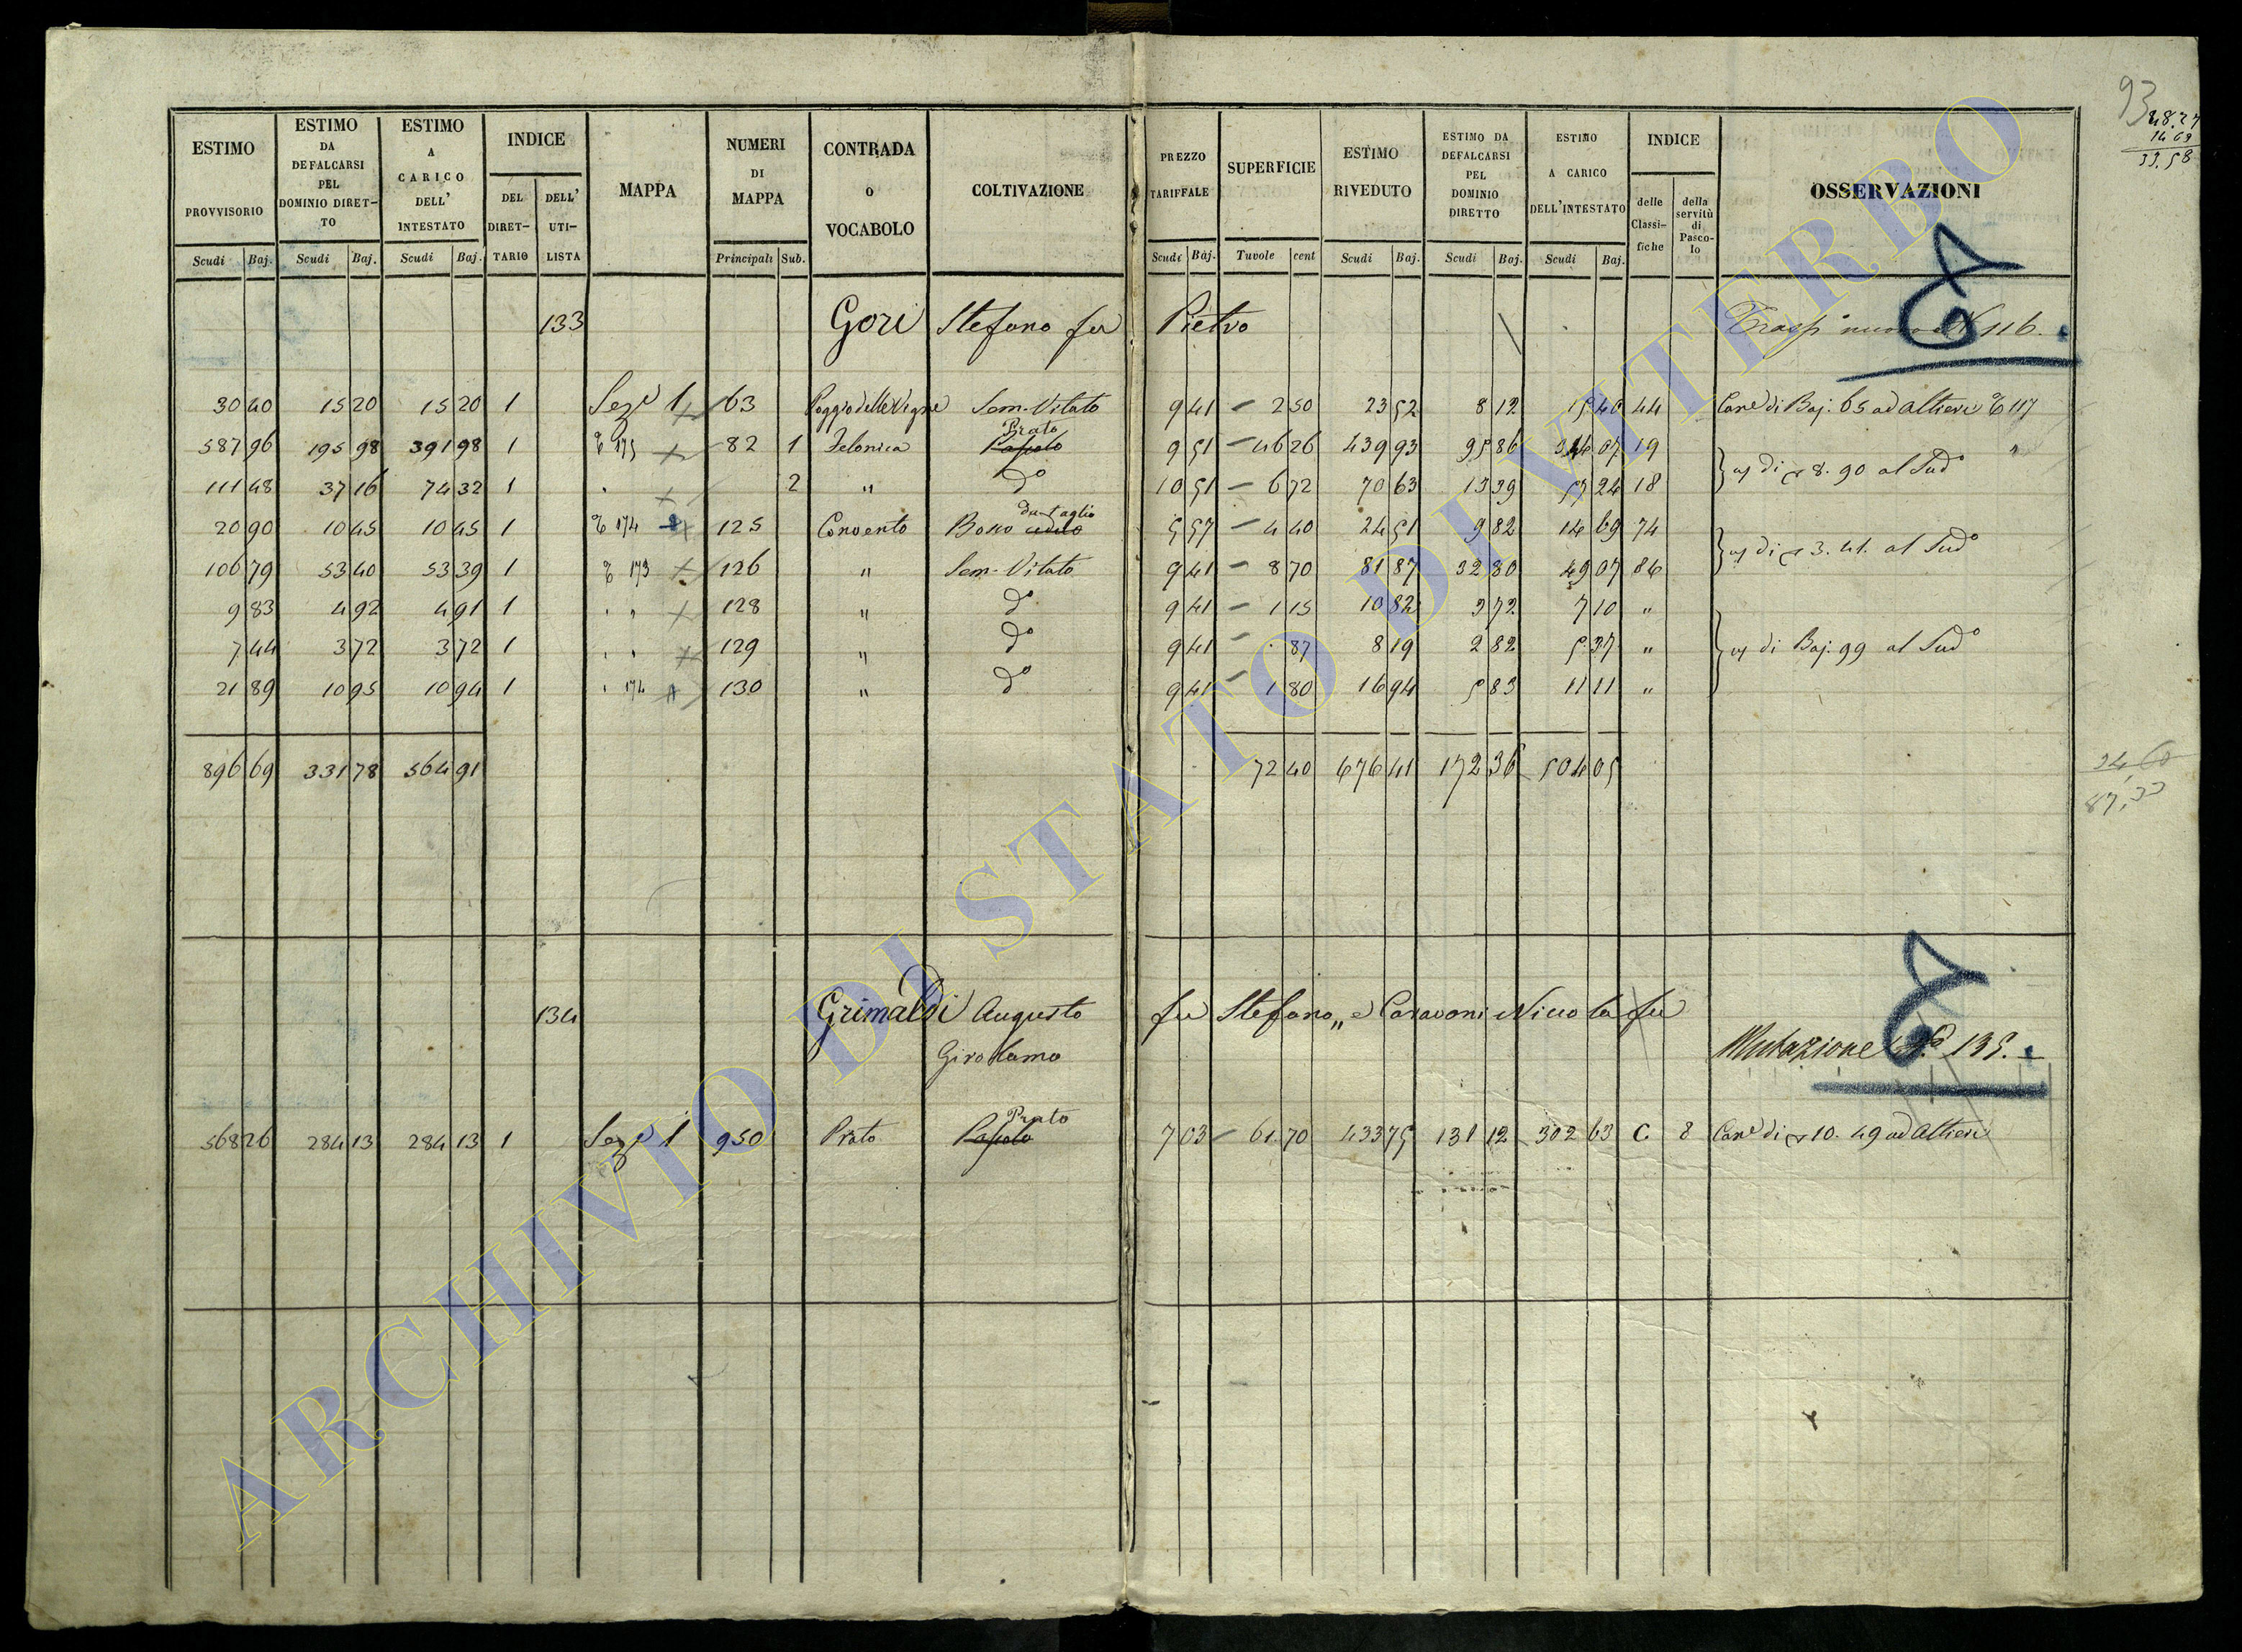 93
48.27
14.69
33.58
ESTIMO PROVVISORIO Scudi Baj.
ESTIMO DA DEFALCARSI PEL DOMINIO DIRET-TO Scudi Baj.
ESTIMO A CARICO DELL' INTESTATO Scudi Baj.
INDICE DEL DIRET-TARIO DELL' UTI-LISTA
MAPPA
NUMERI DI MAPPA Principali Sub.
CONTRADA O VOCABOLO
COLTIVAZIONE
PREZZO TARIFFALE Scudi Baj.
SUPERFICIE Tavole cent
ESTIMO RIVEDUTO Scudi Baj.
ESTIMO DA DEFALCARSI PEL DOMINIO DIRETTO Scudi Baj.
ESTIMO A CARICO DELL'INTESTATO Scudi Baj.
INDICE delle Classi-fiche della servitù di Pasco-lo
OSSERVAZIONI
133 Gori Stefano fu Pietro 116.
30 40 15 20 15 20 1 Seze 1 63 Poggio delle Vigne Sem. Vitato 9 41 2 50 23 52 8 12 15 40 44 Cane di Baj. 65 ad Altieri 117
Prato
587 96 195 98 391 98 1 175 82 1 Felonica Pascolo 9 51 46 26 439 93 95 86 344 07 19
111 48 37 16 74 32 1 2 " do 10 51 6 72 70 63 13 39 57 24 18 di 8. 90 al Sudo
da taglio
20 90 10 45 10 45 1 174 125 Convento Bosco ceduo 5 57 4 40 24 51 9 82 14 69 74
106 79 53 40 53 39 1 173 126 " Sem. Vitato 9 41 8 70 81 87 32 80 49 07 84 di 3. 41. al Sudo
9 83 4 92 4 91 1 128 " do 9 41 1 15 10 82 3 72 7 10 "
7 44 3 72 3 72 1 129 " do 9 41 87 8 19 2 82 5 37 " di Baj. 99 al Sudo
21 89 10 95 10 94 1 174 130 " do 9 41 1 80 16 94 5 83 11 11 "
896 69 331 78 564 91 72 40 676 41 172 36 504 05
87,33
134 Grimaldi Augusto fu Stefano, e Nicola fu
Girolamo
Mutazione 135.
Prato
568 26 284 13 284 13 1 Seze 1 950 Prato Pascolo 7 03 61 70 433 75 131 12 302 63 C. 8 Cane di 10. 49 ad Altieri
ARCHIVIO DI STATO DI VITERBO